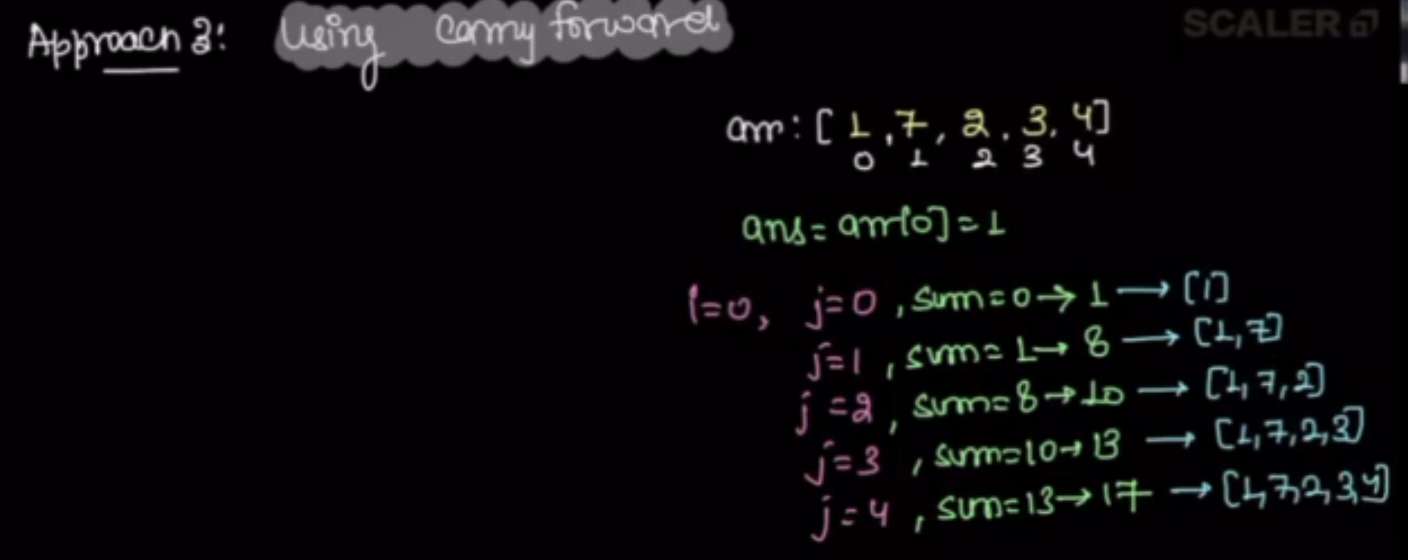 Approach 3: Using carry forward
SCALER
arr: [1, 7, 2, 3, 4]
0 1 2 3 4
ans = arr[0] = 1
i=0, j=0, sum=0→1 → [1]
j=1, sum=1→8 → [1,7]
j=2, sum=8→10 → [1,7,2]
j=3, sum=10→13 → [1,7,2,3]
j=4, sum=13→17 → [1,7,2,3,4]